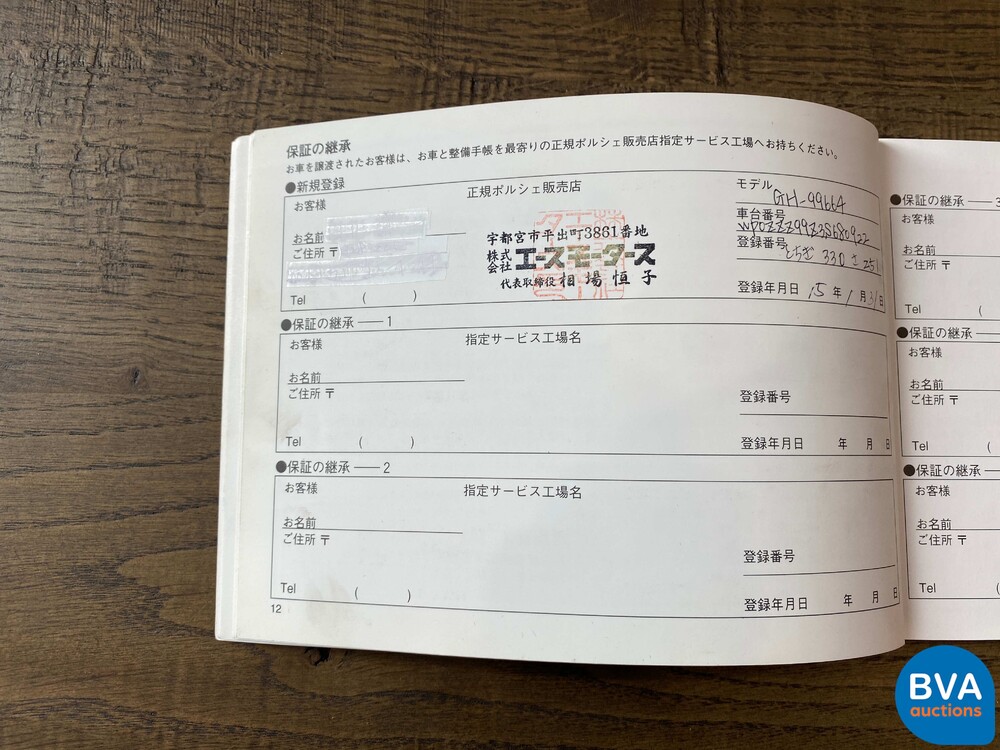 保証の継承
お車を譲渡されたお客様は、お車と整備手帳を最寄りの正規ポルシェ販売店指定サービス工場へお持ちください。
●新規登録
お客様
正規ポルシェ販売店
モデル GH-99664
車台番号
WP0ZZZ99Z3S680922
お名前
宇都宮市平出町3861番地
登録番号 とちぎ 330 さ 251
ご住所 〒
株式会社 エースモータース
代表取締役 相場恒子
Tel ( )
登録年月日 15年1月31日
●保証の継承 — 1
お客様
指定サービス工場名
お名前
ご住所 〒
登録番号
Tel ( )
登録年月日 年 月 日
●保証の継承 — 2
お客様
指定サービス工場名
お名前
ご住所 〒
登録番号
Tel ( )
登録年月日 年 月 日
12
●保証の継承 — 3
お客様
お名前
ご住所 〒
Tel (
●保証の継承 —
お客様
お名前
ご住所 〒
Tel (
●保証の継承 —
お客様
お名前
ご住所 〒
Tel (
BVA
auctions